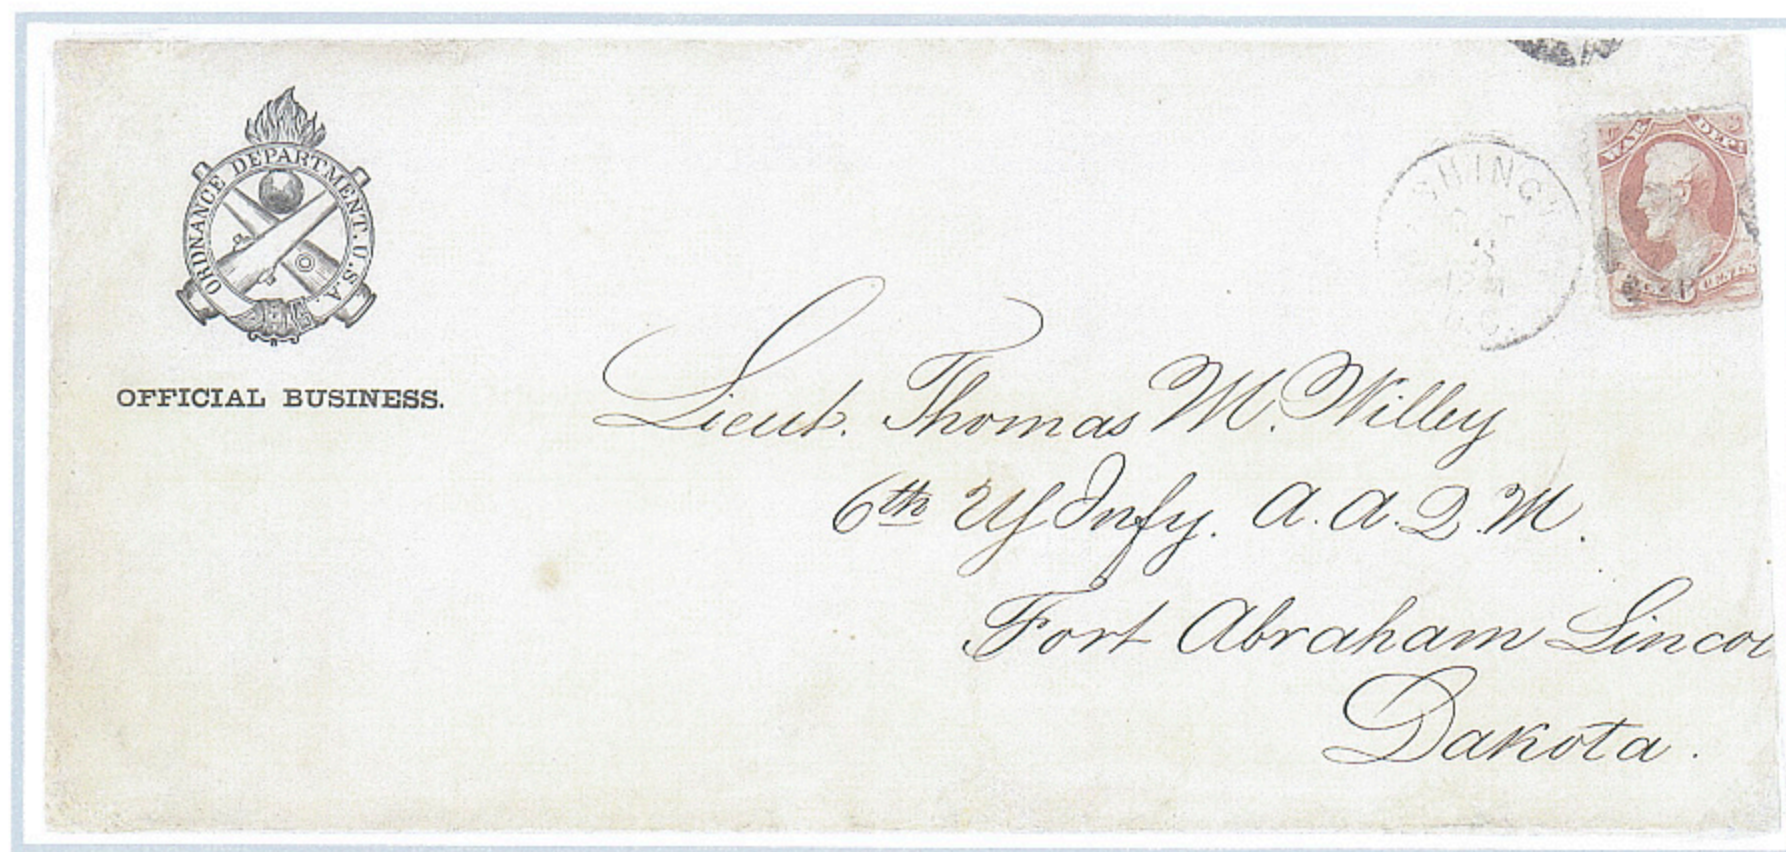 ORDNANCE DEPARTMENT. U.S.A.
OFFICIAL BUSINESS.
WAR DEPT
SHING
12 M
D.C.
Lieut. Thomas M. Willey
6th Infy. A.A.Q.M.
Fort Abraham Lincol
Dakota.